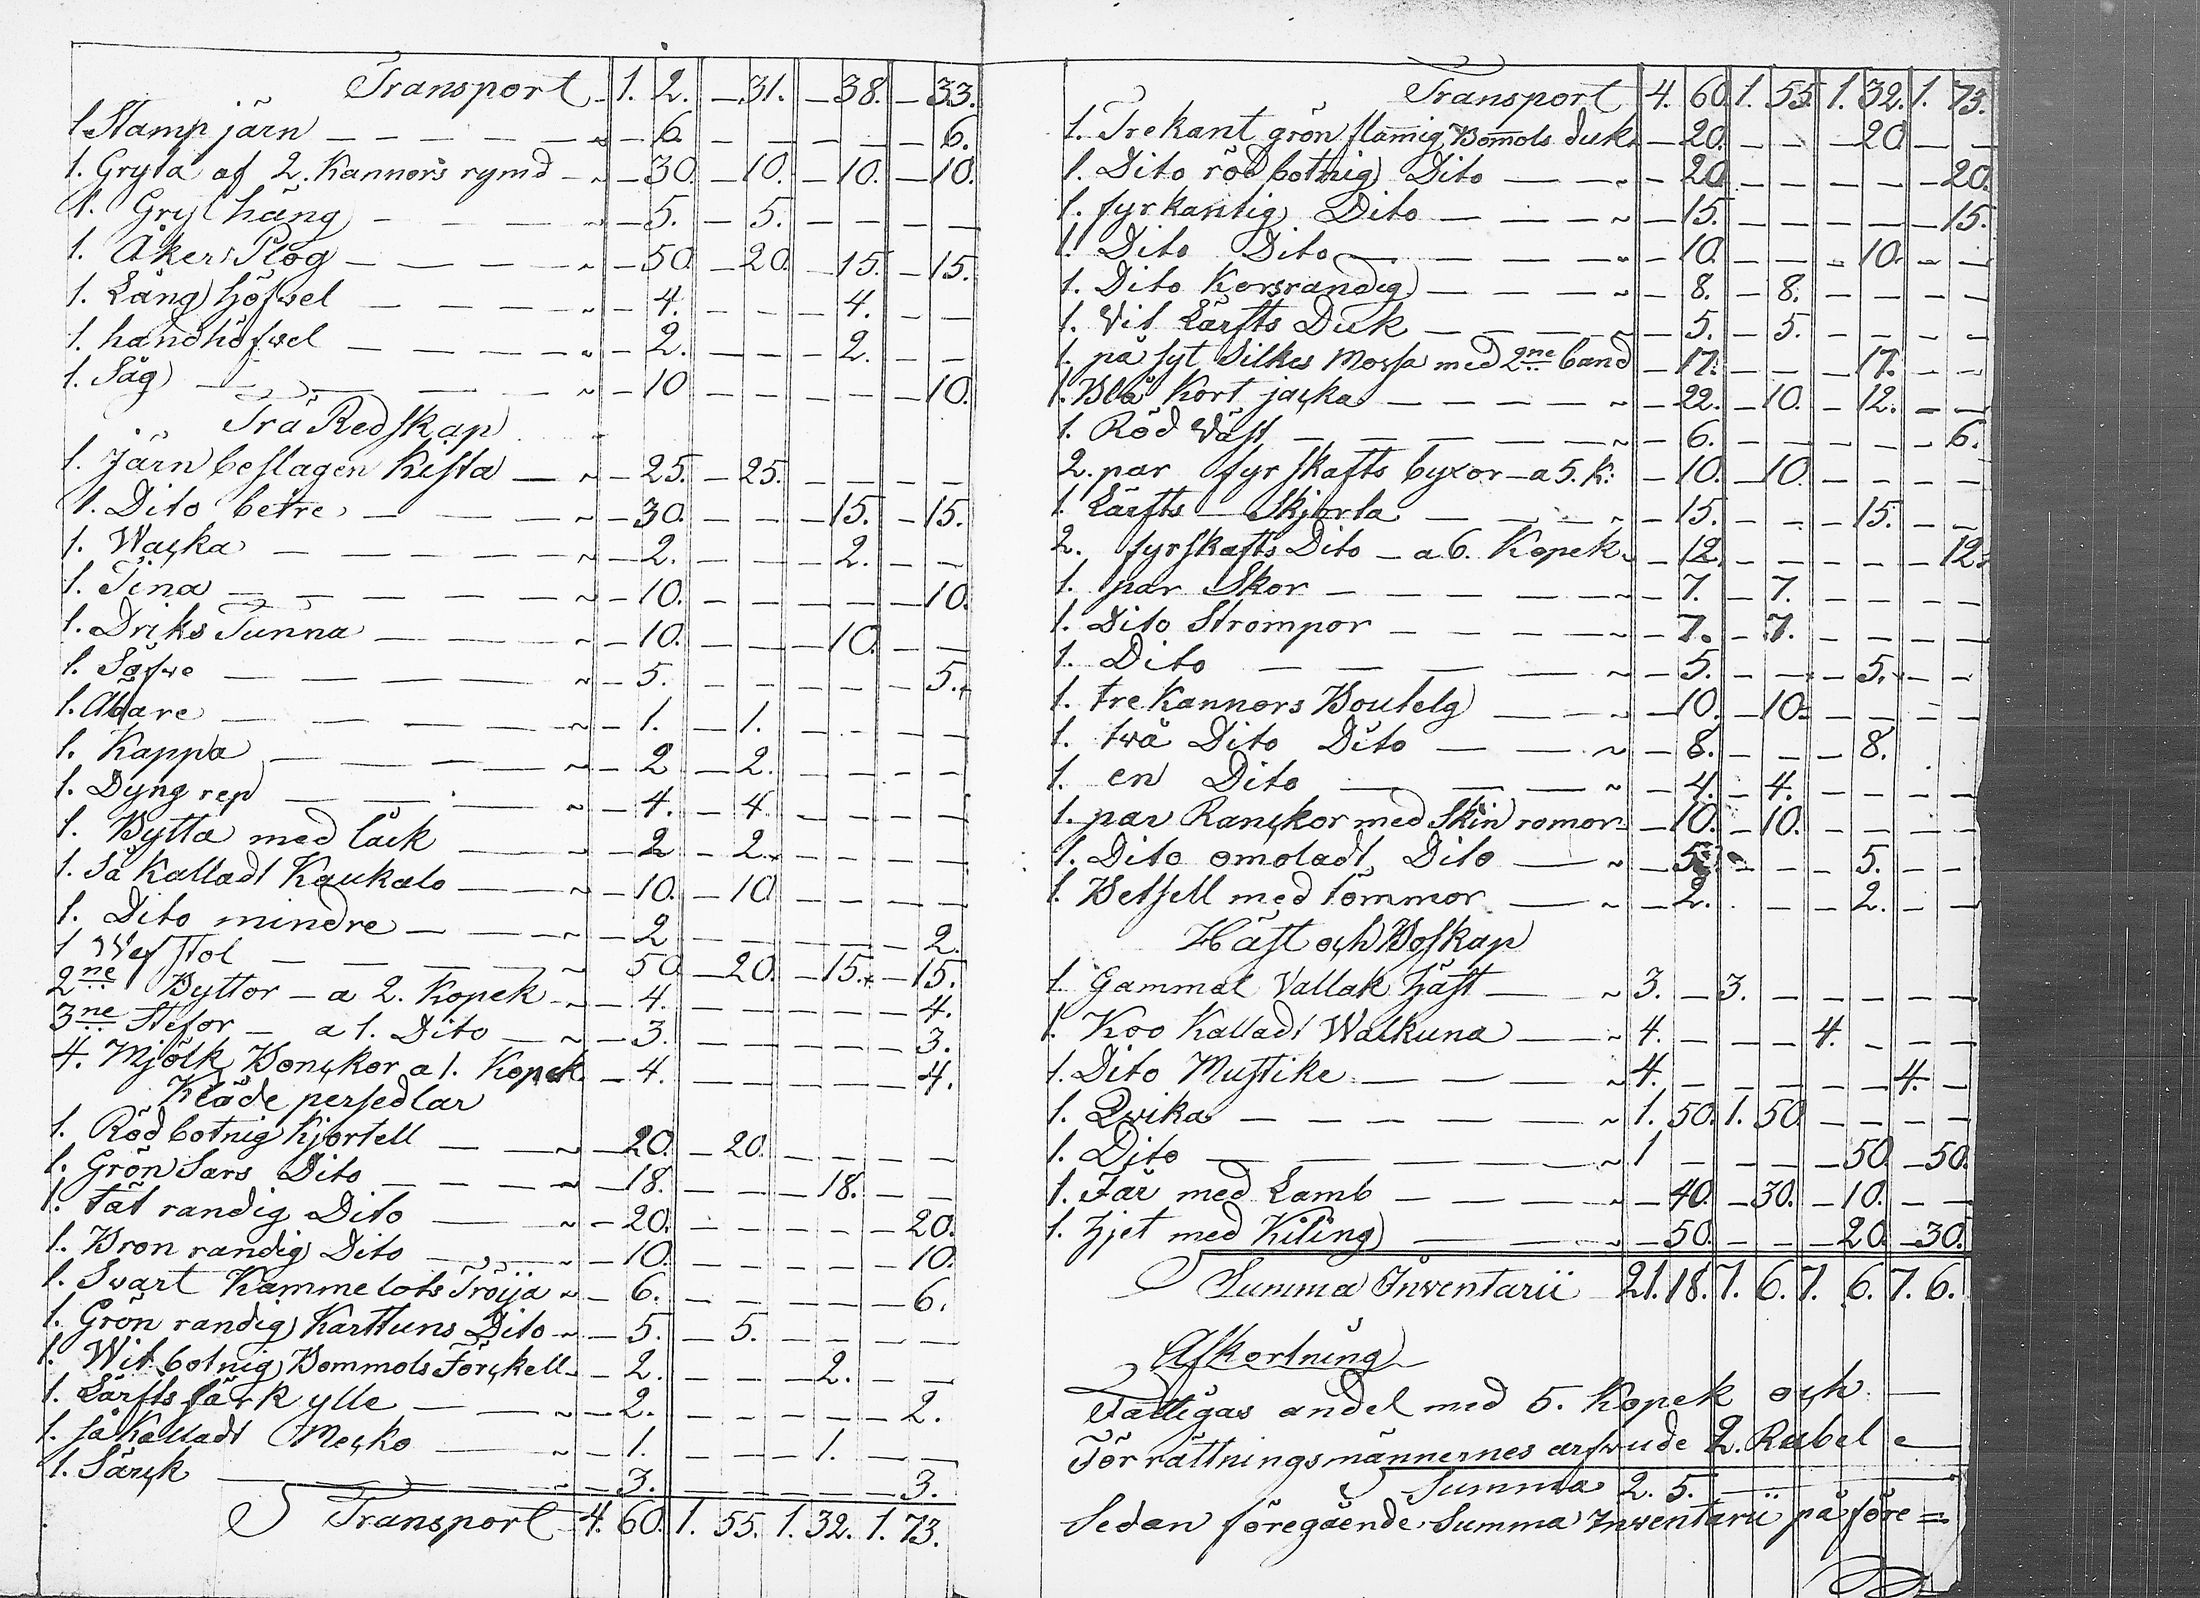 Transport 1. 2. — 31. — 38. — 33.
1 Stamp järn — 6. — — — 6.
1. Gryta af 2. Kannors rymd — 30. — 10. — 10. — 10.
1. Gryt häng — 5. — 5. — — —
1. Åker Plog — 50. — 20. — 15. — 15.
1. Lång höfvel — 4. — — 4. — —
1. handhöfvel — 2. — — 2. — —
1. Såg — 10 — — — 10.
Trä Redskap
1. Järn beslagen Kista — 25. — 25. — — —
1. Dito betre — 30. — — 15. — 15.
1. Wacka — 2. — — 2. — —
1. Tina — 10. — — — 10.
1. Driks Tunna — 10. — — 10. — —
1. Såfwe — 5. — — — 5.
1. Abare — 1. — 1. — — —
1. Kappa — 2 — 2. — — —
1. Dyng rep — 4. — 4. — — —
1. Bytta med låck — 2 — 2. — — —
1. Så Kalladt Kaukalo — 10. — 10 — — —
1. Dito mindre — 2 — — — 2.
1 Wef stol — 50. — 20. — 15. — 15.
2ne Byttor — a 2. Kopek — 4. — — — 4.
3ne Stefor — a 1. Dito — 3. — — — 3.
4. Mjölk Bonckor a 1. Kopek — 4. — — — 4.
Kläde persedlar
1. Röd botnig Kjortell — 20. — 20. — — —
1. Grön Sars Dito — 18. — — 18. — —
1. tät randig Dito — 20. — — — 20.
1. Bron randig Dito — 10. — — — 10.
1. Svart Kammelots Tröija — 6. — — — 6.
1. Grön randig Karttuns Dito — 5. — 5. — — —
1. Wit botnig Bommols Förckell — 2. — — 2. — —
1. Lärfts särk ylle — 2. — — — 2.
1. så Kalladt Mecko — 1. — — 1. — —
1. Särck — 3. — — — 3.
Transport 4. 60. 1. 55. 1. 32. 1. 73.
Transport 4. 60. 1. 55. 1. 32. 1. 73.
1. Trekant grön flamig Bomols duk — 20. — — 20 — —
1. Dito röd botnig Dito — 20 — — — 20.
1. fyrkantig Dito — 15. — — — 15.
1. Dito Dito — 10. — — 10. — —
1. Dito Korsrandig — 8. — 8. — — —
1. Vit Lärfts Duk — 5. — 5. — — —
1. på syt Silkes Mossa med 2ne band — 17. — — 17. — —
1. Blå Kort jacka — 22. — 10. — 12. — —
1. Röd Väst — 6. — — — 6.
2. par fyrskafts byxor — a 5. K: — 10. — 10. — — —
1 Lärfts Skjorta — 15. — — 15. — —
2. fyrskafts Dito — a 6. Kopek — 12. — — — 12.
1. par Skor — 7. — 7. — — —
1. Dito Strompor — 7. — 7. — — —
1. Dito — 5. — — 5. — —
1. tre Kannors Boutelg — 10. — 10. — — —
1. två Dito Dito — 8. — — 8.
1. en Dito — 4. — 4. — — —
1. par Ranckor med Skin romor — 10. — 10. — — —
1. Dito omoladt Dito — 5. — — 5. — —
1. Betsell med tömmor — 2. — — 2. — —
Häst och Boskap
1. Gammal Vallak häst — 3. — 3. — — —
1. Koo Kalladt Walkuna — 4. — — 4. — —
1. Dito Mustike — 4. — — — 4. —
1. Qvika — 1. 50. 1. 50. — — —
1. Dito — 1 — — — 50. — 50.
1. Får med Lamb — 40. — 30. — 10. — —
1. Hjet med Kiling — 50. — — 20. — 30.
Summa Inventarii 21. 18. 7. 6. 7. 6. 7. 6.
Afkortning
Fattigas andel med 5. Kopek och —
Förrättningsmännernes arfwude 2. Rubel —
Summa 2. 5.
Sedan föregående Summa Inventarii på före =